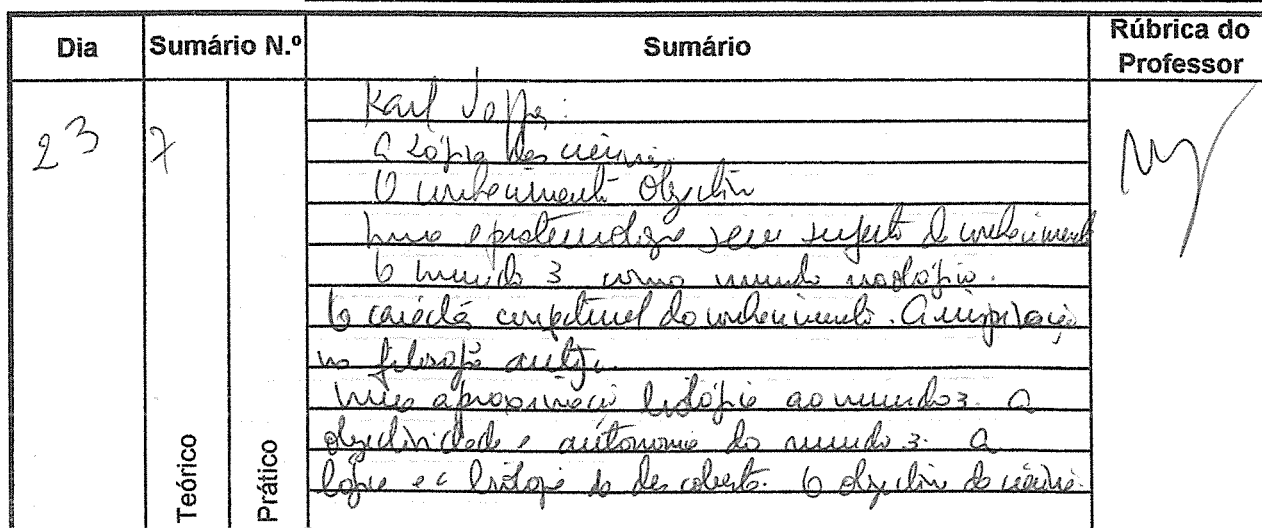 Dia Sumário N.º Sumário Rúbrica do Professor
23 7
Karl Popper:
A Lógica das ciências
O conhecimento Objectivo
Uma epistemologia sem sujeito do conhecimento
O mundo 3 como mundo noológico.
O carácter conjectural do conhecimento. A inspiração
na filosofia
Uma aproximação biológica ao mundo 3. A
objectividade e autonomia do mundo 3. A
lógica e a biologia da descoberta. O objectivo da ciência.
Teórico
Prático